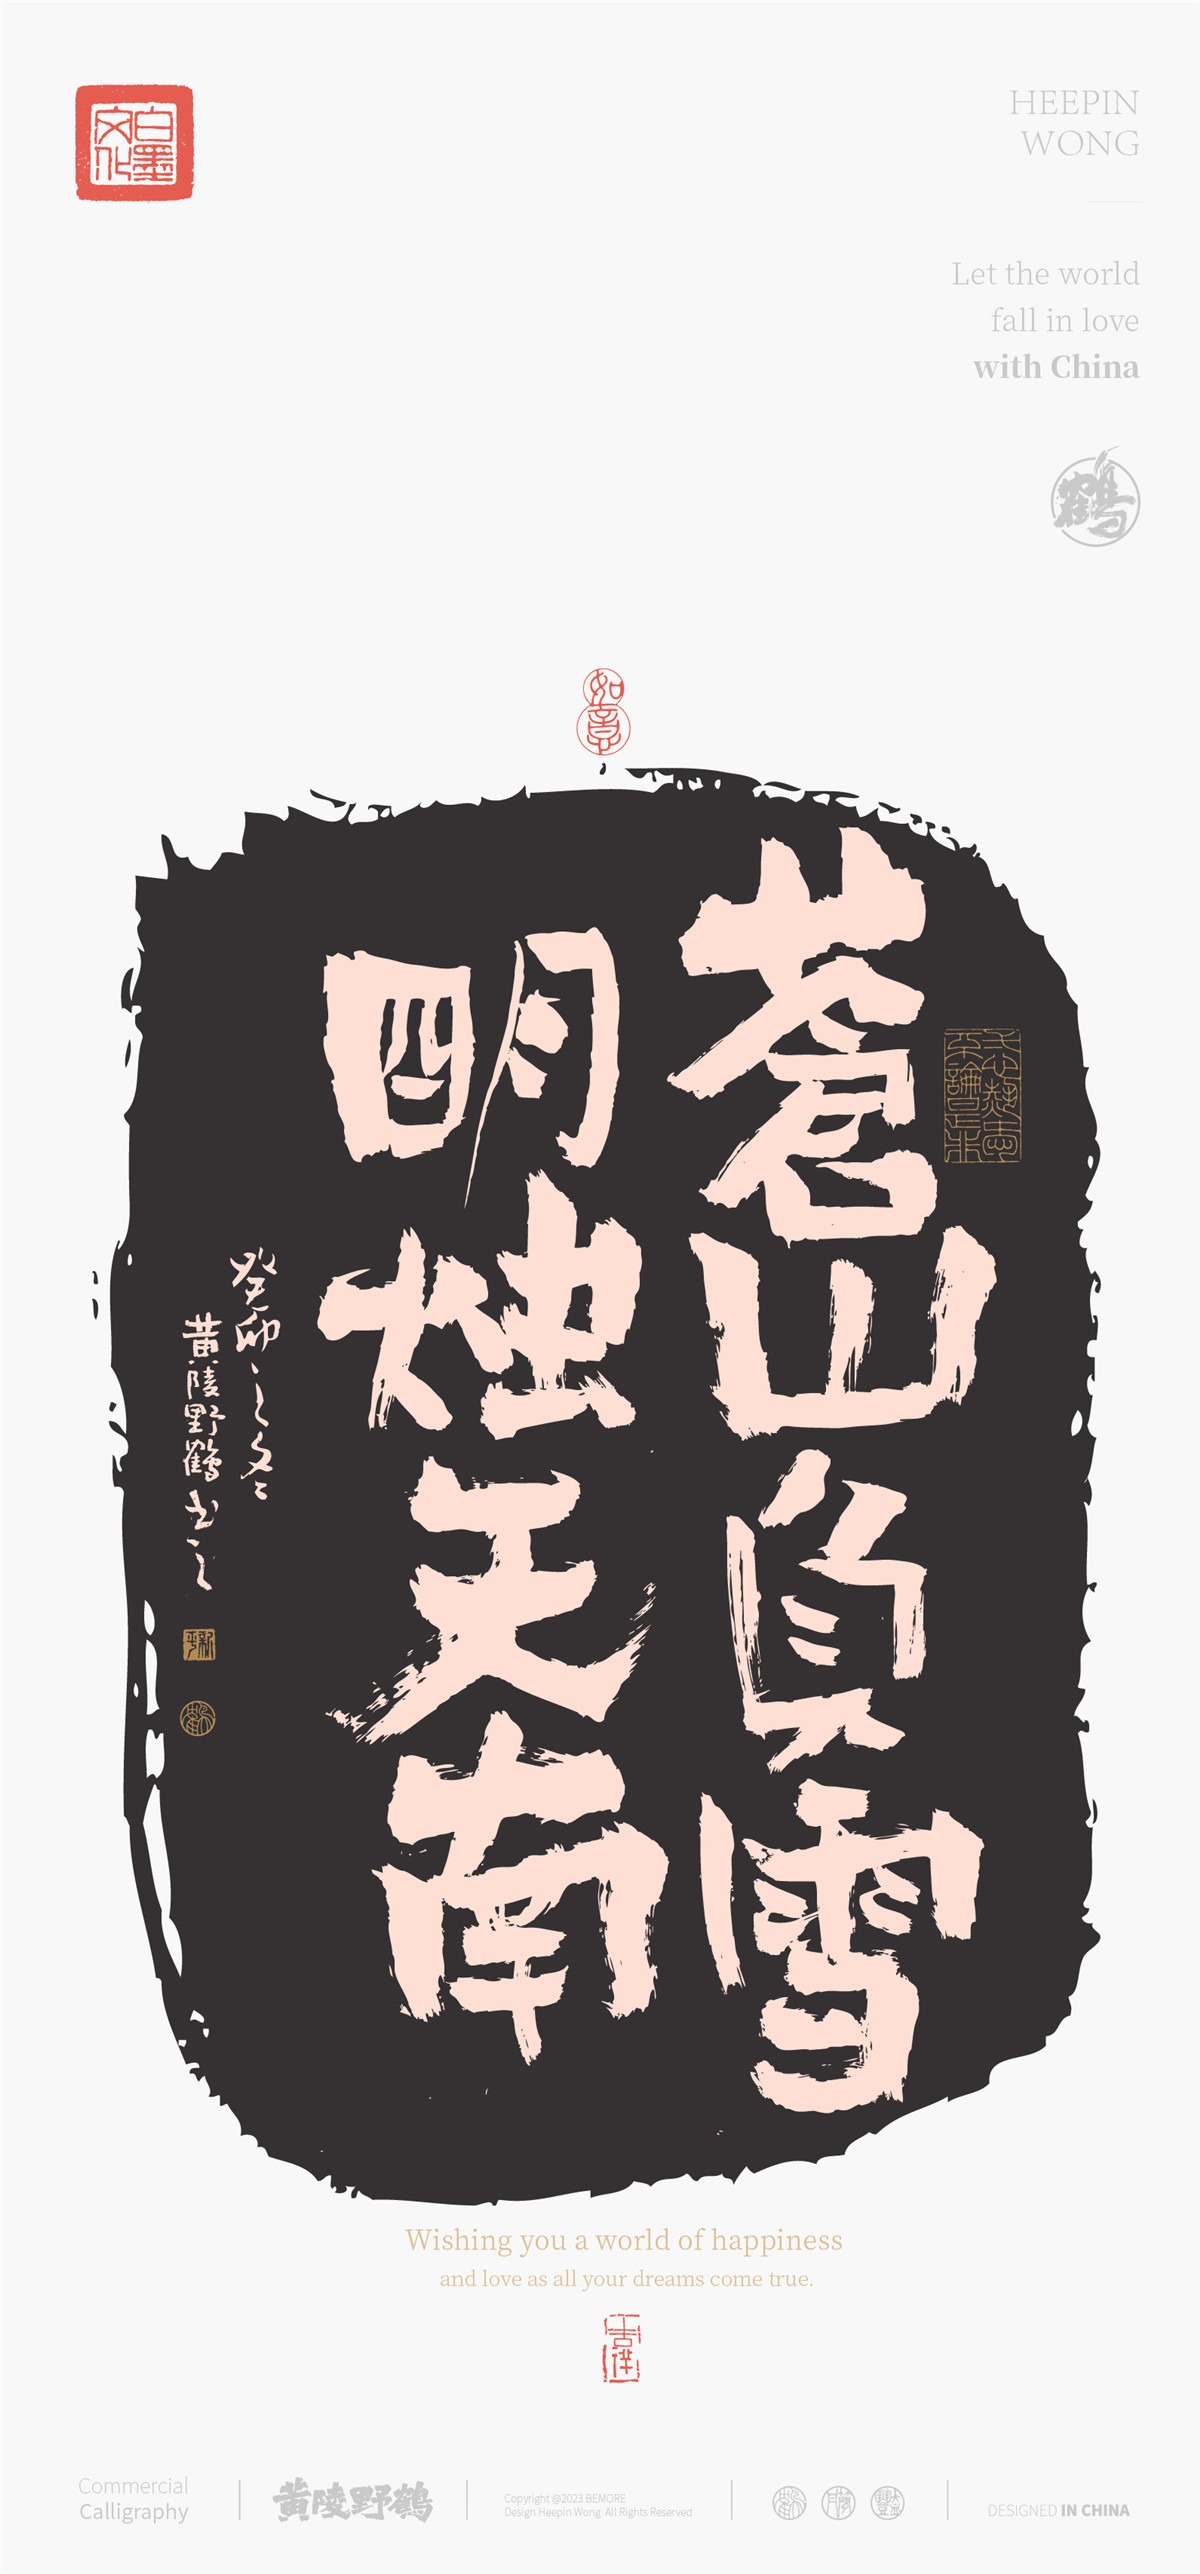 白墨
文化
HEEPIN
WONG
Let the world
fall in love
with China
鶴
如意
蒼山負雪
明烛天南
癸卯之冬
黄陵野鶴书之
新平
鶴
Wishing you a world of happiness
and love as all your dreams come true.
吉祥
Commercial
Calligraphy
黄陵野鶴
Copyright @2023 BEMORE
Design Heepin Wong All Rights Reserved
DESIGNED IN CHINA